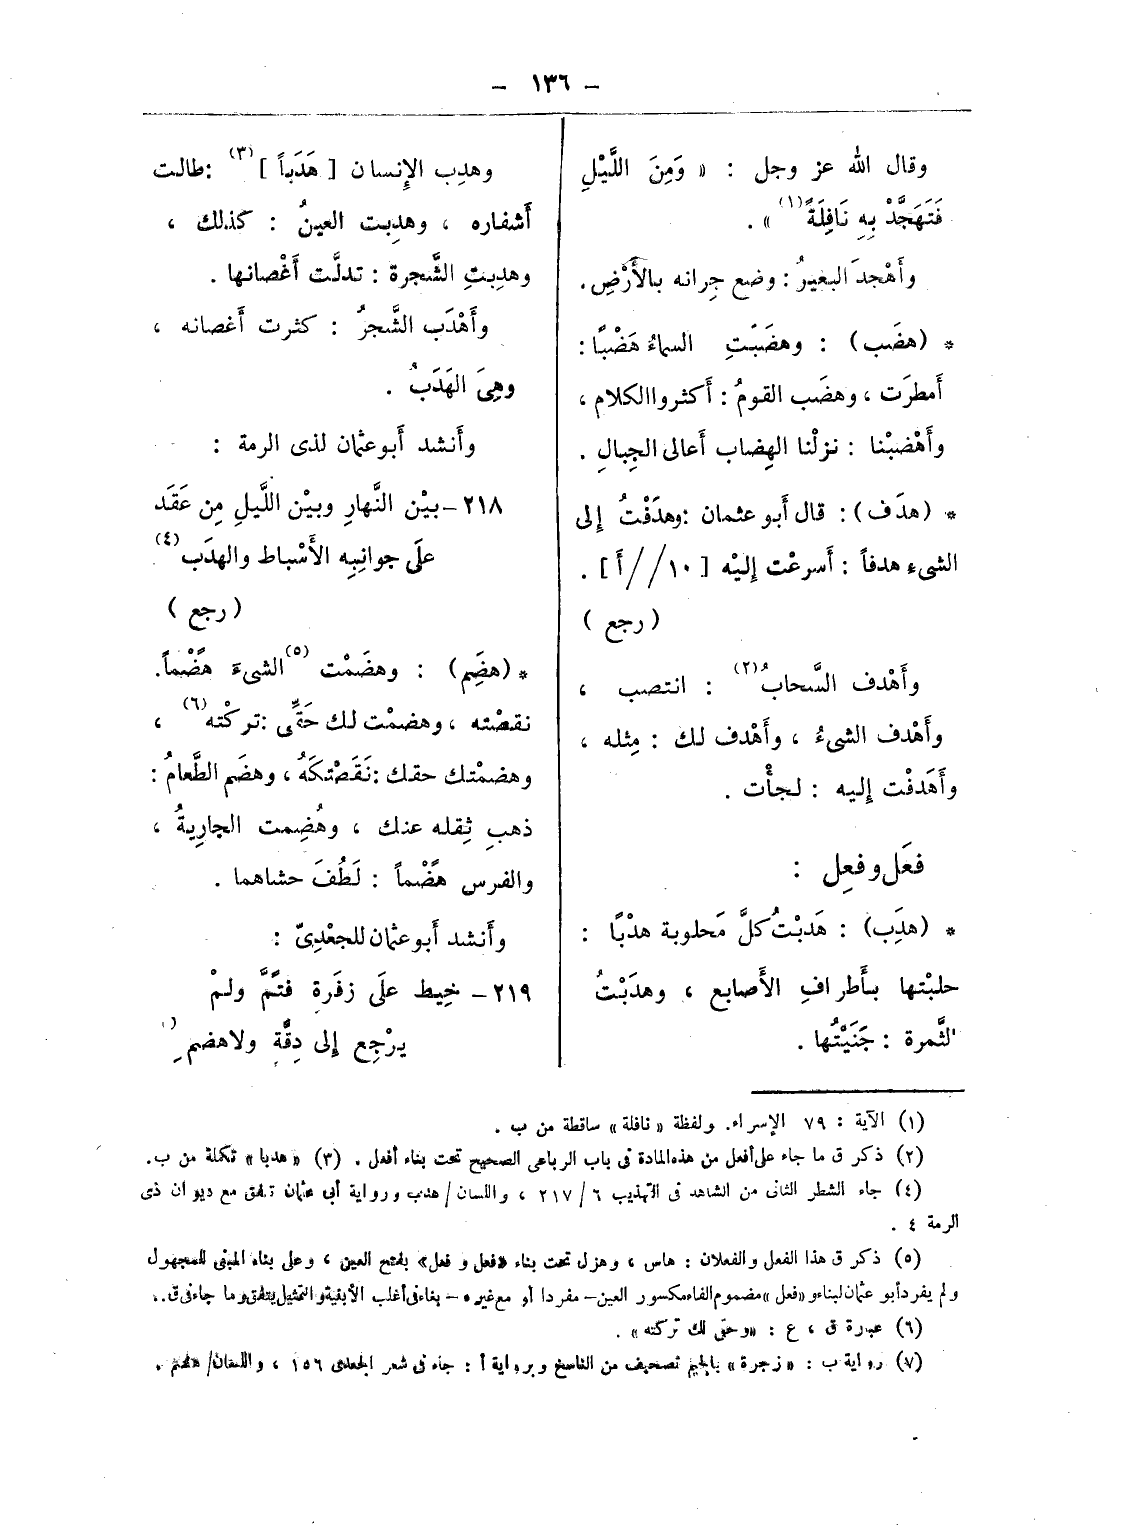 - ١٣٦ -
وقال الله عز وجل : « وَمِنَ اللَّيْلِ
فَتَهَجَّدْ بِهِ نَافِلَةً(١) » .
وأَهْجدَ البعيرُ : وضع جِرانه بالأَرْضِ .
* (هضَب) : وهضَبَتِ السماءُ هَضْبًا :
أَمطرَت ، وهضَب القومُ : أَكثروا الكلام ،
وأَهْضبْنا : نزلْنا الهِضاب أَعالى الجِبالِ .
* (هدَف) : قال أَبو عثمان : وهدَفْتُ إِلى
الشىء هدفاً : أَسرعْت إِليْه [ ١٠ // أ ] .
( رجع )
وأَهْدف السَّحابُ(٢) : انتصب ،
وأَهْدف الشىءُ ، وأَهْدف لك : مِثله ،
وأَهَدفْت إِليه : لجأْت .
فعَل وفعِل :
* (هدَِب) : هَدبْتُ كلَّ مَحلوبة هدْبًا :
حلبْتها بأَطرافِ الأَصابع ، وهدَبْتُ
الثَّمرة : جَنَيْتُها .
وهدِب الإِنسان [ هَدَباً ](٣) : طالت
أَشفاره ، وهدِبت العينُ : كذلك ،
وهدِبتِ الشَّجرة : تدلَّت أَغْصانها .
وأَهْدَب الشَّجرُ : كثرت أَغصانه ،
وهِىَ الهَدَبُ .
وأَنشد أَبو عثمان لذى الرمة :
٢١٨ - بيْن النَّهارِ وبيْن اللَّيلِ مِن عَقَد
علَى جوانِبِه الأَسْباط والهدَب(٤)
( رجع )
* (هضَِم) : وهضَمْت(٥) الشىءَ هَضْماً.
نقصْته ، وهضمْت لك حَقِّى : تركْته(٦) ،
وهضمْتك حقك : نَقَصْتكَهُ ، وهضَم الطَّعامُ :
ذهب ثِقله عنك ، وهُضِمت الجارِيةُ ،
والفرس هَضْماً : لَطُفَ حشاهما .
وأَنشد أَبو عثمان للجعْدِىّ :
٢١٩ - خِيط علَى زفَرة فتَمَّ ولمْ
يرْجِع إِلى دِقَّةٍ ولا هضم(
(١) الآية : ٧٩ الإسراء. ولفظة « نافلة » ساقطة من ب .
(٢) ذكر ق ما جاء على أفعل من هذه المادة فى باب الرباعى الصحيح تحت بناء أفعل . (٣) « هدبا » تكملة من ب.
(٤) جاء الشطر الثانى من الشاهد فى التهذيب ٦ / ٢١٧ ، واللسان / هدب ورواية أبى عثمان تتفق مع ديوان ذى
الرمة ٤ .
(٥) ذكر ق هذا الفعل والفعلان : هاس ، وهزل تحت بناء «فعل و فعل» بفتح العين ، وعلى بناء المبنى للمجهول
ولم يفرد أبو عثمان لبناء و «فعل» مضموم الفاء مكسور العين - مفردا أو مع غيره - بناء فى أغلب الأبنية والتمثيل يتفق وما جاء فى ق..
(٦) عبارة ق ، ع : «وحقى لك تركته» .
(٧) رواية ب : « زجرة » بالجيم تصحيف من الناسخ وبرواية أ : جاء فى شعر الجعدى ١٥٦ ، واللسان/ هضم .